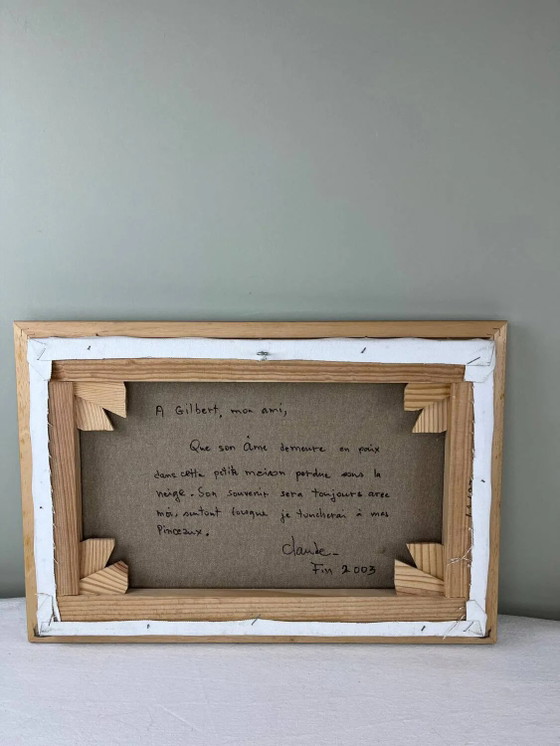 A Gilbert, mon ami,
Que son Âme demeure en paix
dans cette petite maison perdue sous la
neige. Son souvenir sera toujours avec
moi, surtout lorsque je toucherai à mes
Pinceaux.
Claude_
Fin 2003